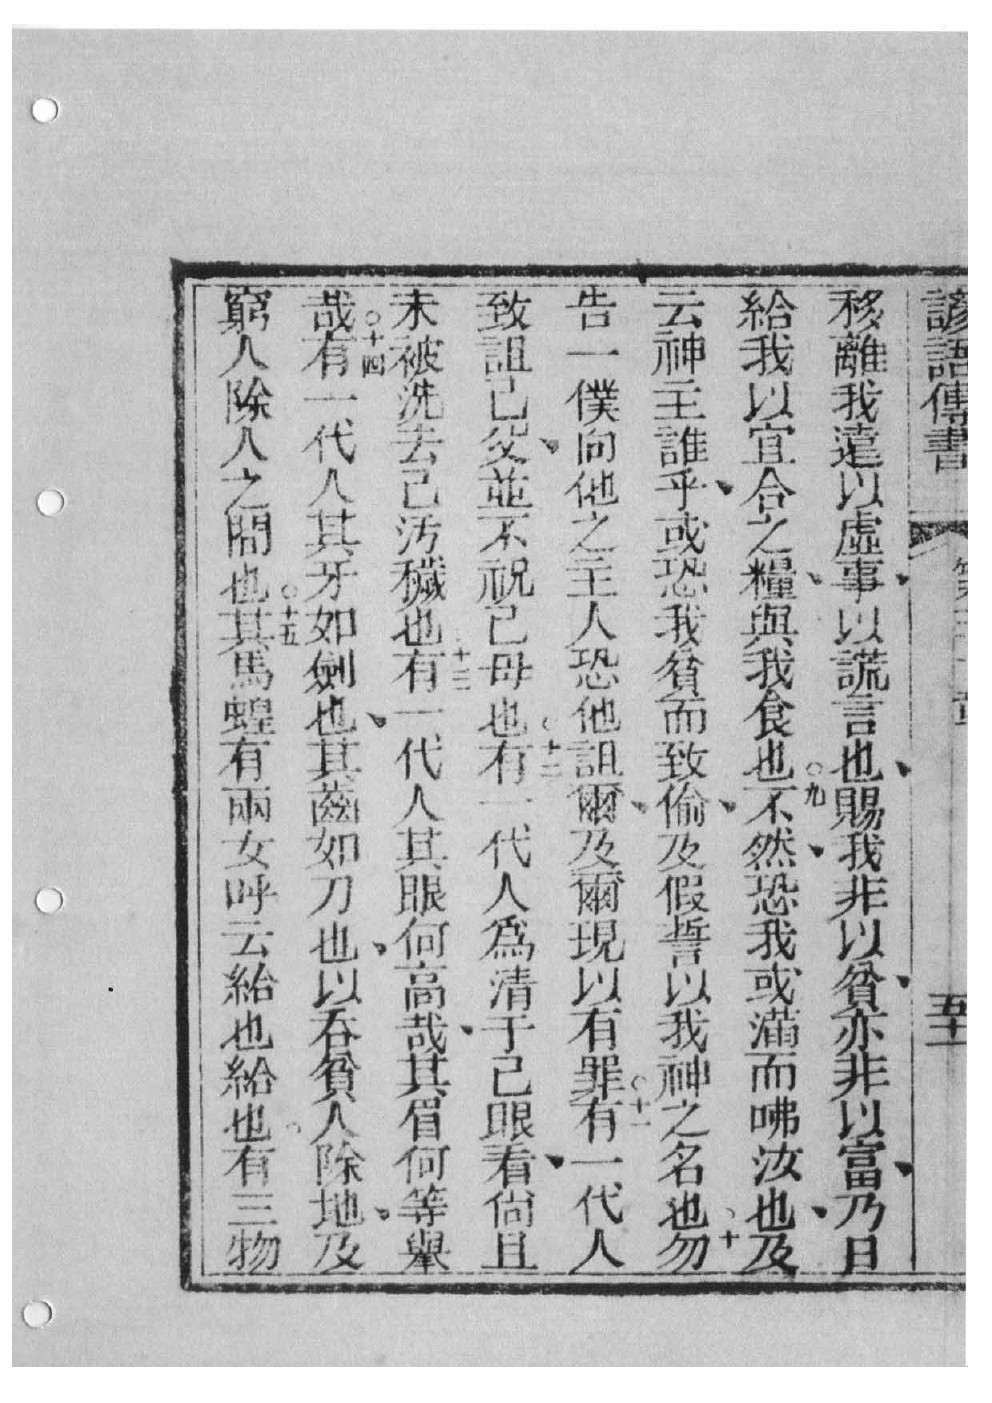 諺語傳書 五十
移離我遠以虛事以謊言也賜我非以貧亦非以富乃日
給我以宜合之糧與我食也○九不然恐我或滿而咈汝也及
云神主誰乎或恐我貧而致偷及假誓以我神之名也○十勿
告一僕向他之主人恐他詛爾及爾現以有罪○十一有一代人
致詛己父並不祝己母也○十二有一代人爲清于己眼看尙且
未被洗去己汚穢也○十三有一代人其眼何高哉其眉何等舉
哉○十四有一代人其牙如劍也其齒如刀也以吞貧人除地及
窮人除人之間也○十五其馬蝗有兩女呼云給也給也有三物